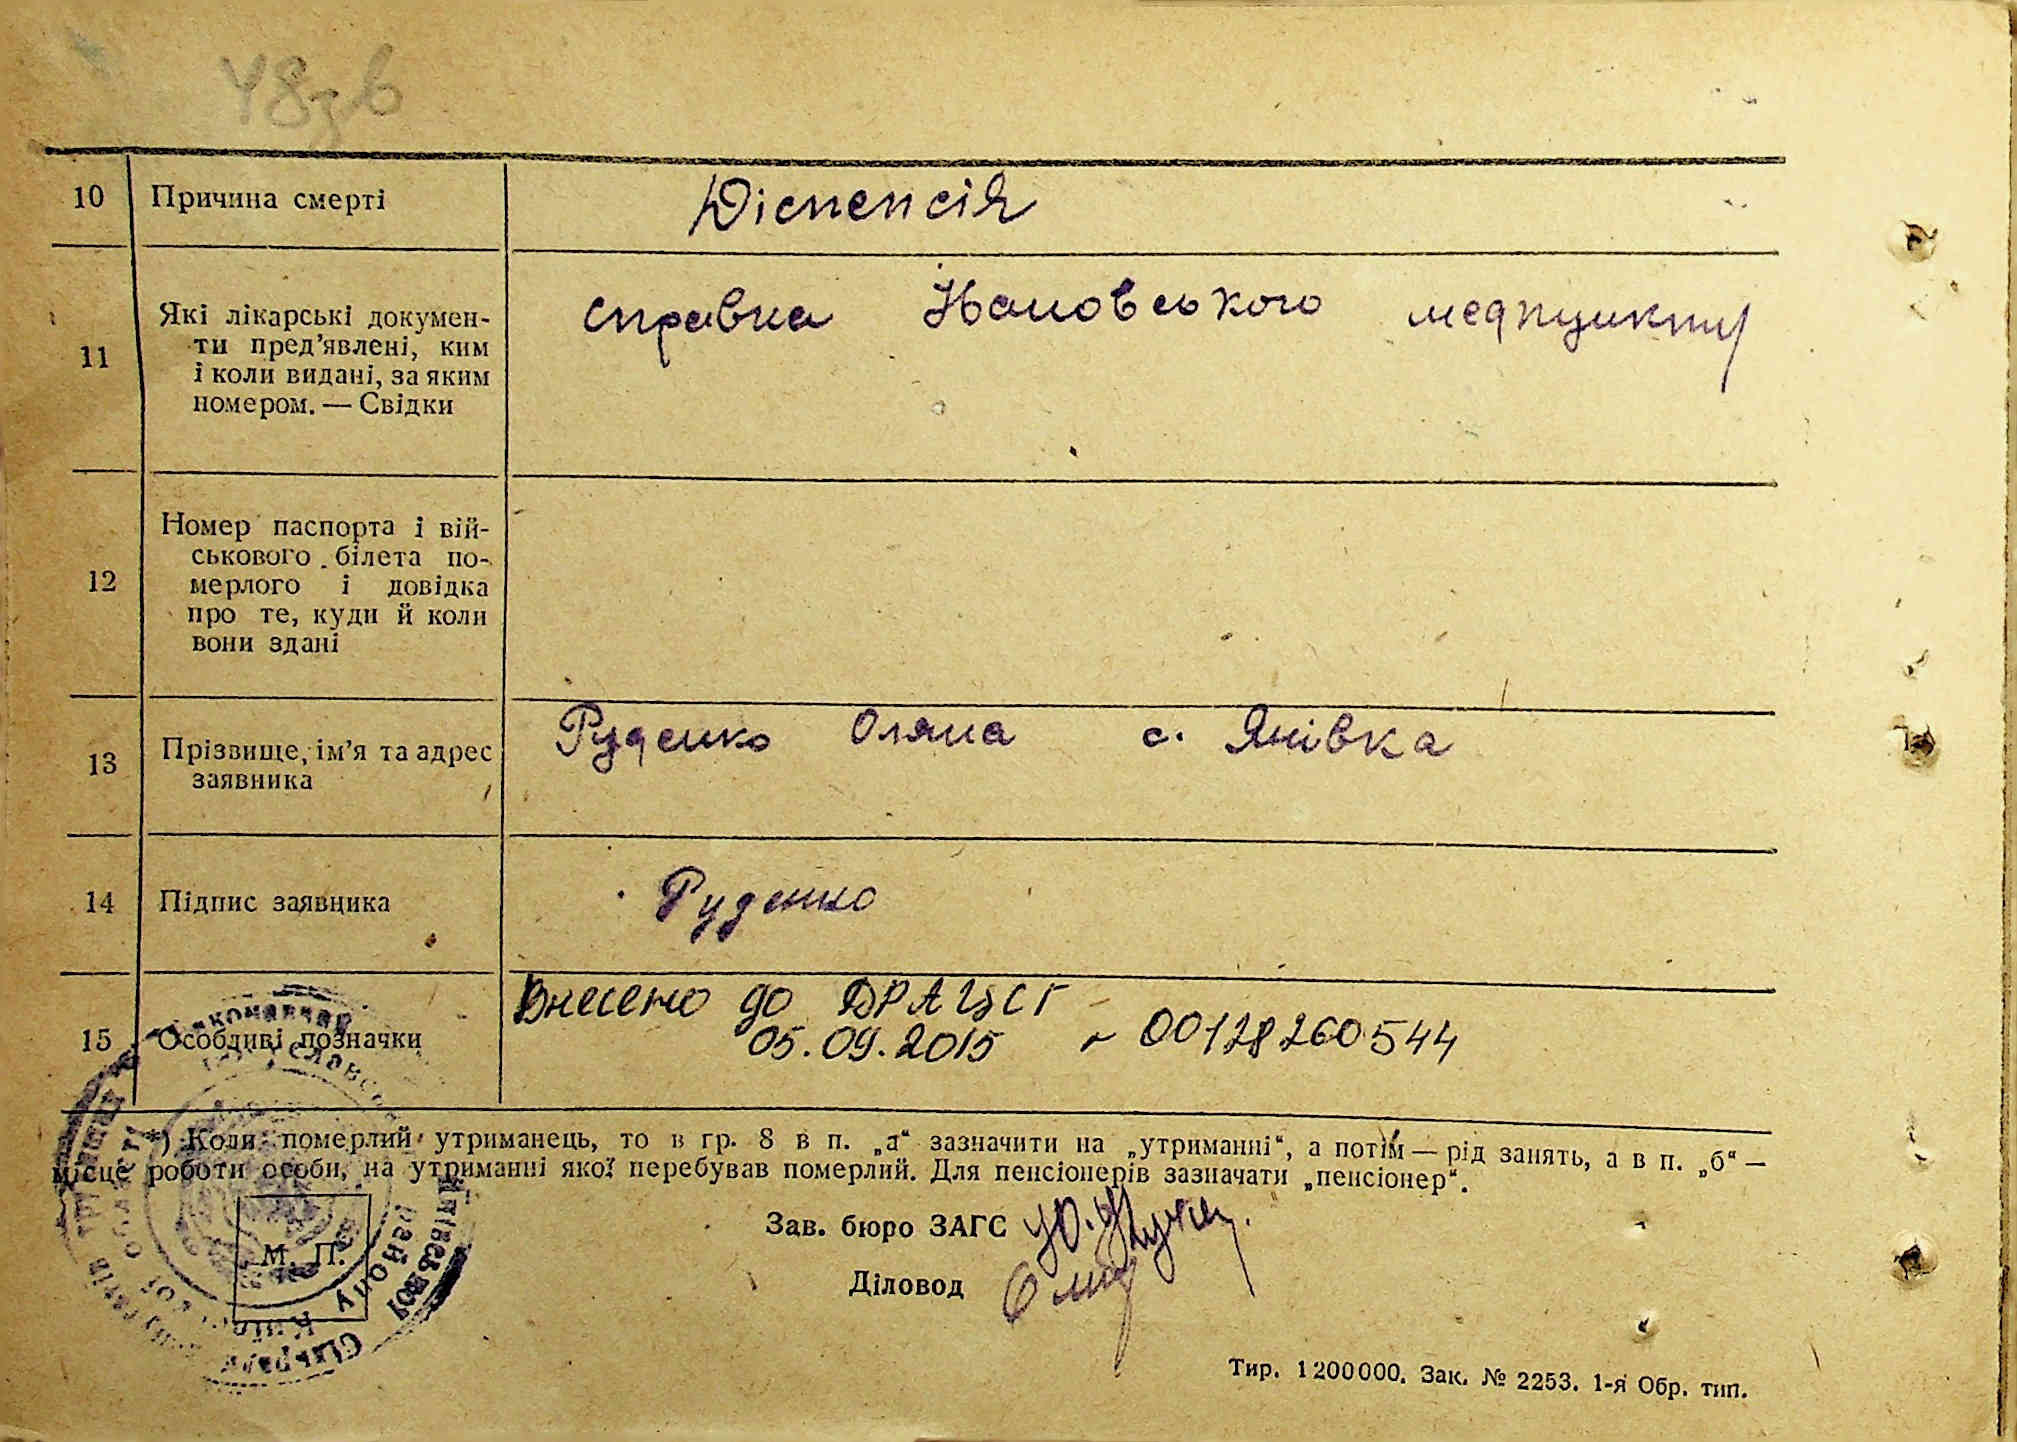 48зв
10 Причина смерті Діспепсія
11 Які лікарські докумен-
ти пред'явлені, ким
і коли видані, за яким
номером. — Свідки
справка медпункту
12 Номер паспорта і вій-
ськового білета по-
мерлого і довідка
про те, куди й коли
вони здані
13 Прізвище, ім'я та адрес
заявника
Руденко Оляна с. Янівка
14 Підпис заявника Руденко
15 Особливі позначки
Внесено до ДРАЦСГ –
05.09.2015 00128260544
*) Коли померлий утриманець, то в гр. 8 в п. „а“ зазначити на „утриманні“, а потім — рід занять, а в п. „б“ —
місце роботи особи, на утриманні якої перебував померлий. Для пенсіонерів зазначати „пенсіонер“.
Зав. бюро ЗАГС
Діловод
М. П.
Тир. 1200000. Зак. № 2253. 1-я Обр. тип.